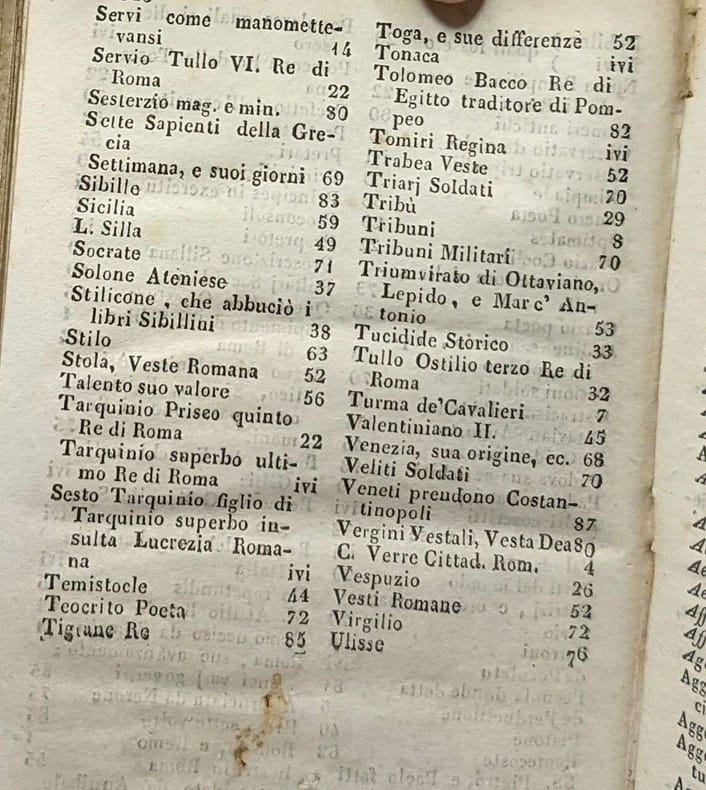 Servi come manomette-
vansi 14
Servio Tullo VI. Re di
Roma 22
Sesterzio mag. e min. 80
Sette Sapienti della Gre-
cia
Settimana, e suoi giorni 69
Sibille 83
Sicilia 59
L. Silla 49
Socrate 71
Solone Ateniese 37
Stilicone, che abbuciò i
libri Sibillini 38
Stilo 63
Stola, Veste Romana 52
Talento suo valore 56
Tarquinio Priseo quinto
Re di Roma 22
Tarquinio superbo ulti-
mo Re di Roma ivi
Sesto Tarquinio figlio di
Tarquinio superbo in-
sulta Lucrezia Roma-
na ivi
Temistocle 44
Teocrito Poeta 72
Tigrane Re 85
Toga, e sue differenze 52
Tonaca ivi
Tolomeo Bacco Re di
Egitto traditore di Pom-
peo 82
Tomiri Regina ivi
Trabea Veste 52
Triarj Soldati 70
Tribù 29
Tribuni 8
Tribuni Militari 70
Triumvirato di Ottaviano,
Lepido, e Marc' An-
tonio 53
Tucidide Storico 33
Tullo Ostilio terzo Re di
Roma 32
Turma de' Cavalieri 7
Valentiniano II. 45
Venezia, sua origine, ec. 68
Veliti Soldati 70
Veneti prendono Costan-
tinopoli 87
Vergini Vestali, Vesta Dea 80
C. Verre Cittad. Rom. 4
Vespuzio 26
Vesti Romane 52
Virgilio 72
Ulisse 76